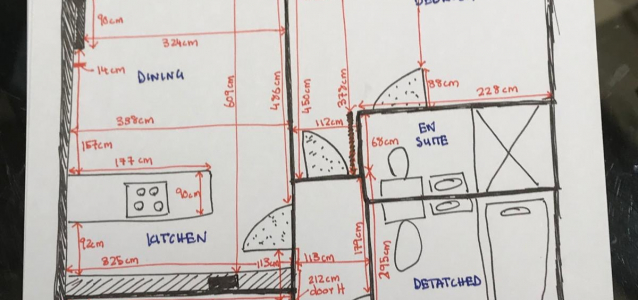 90cm
324cm
14cm
DINING
609cm
486cm
450cm
373cm
88cm
228cm
388cm
112cm
EN
SUITE
68cm
157cm
177cm
90cm
92cm
KITCHEN
325cm
113cm
113cm
179cm
295cm
212cm
door H
DETATCHED